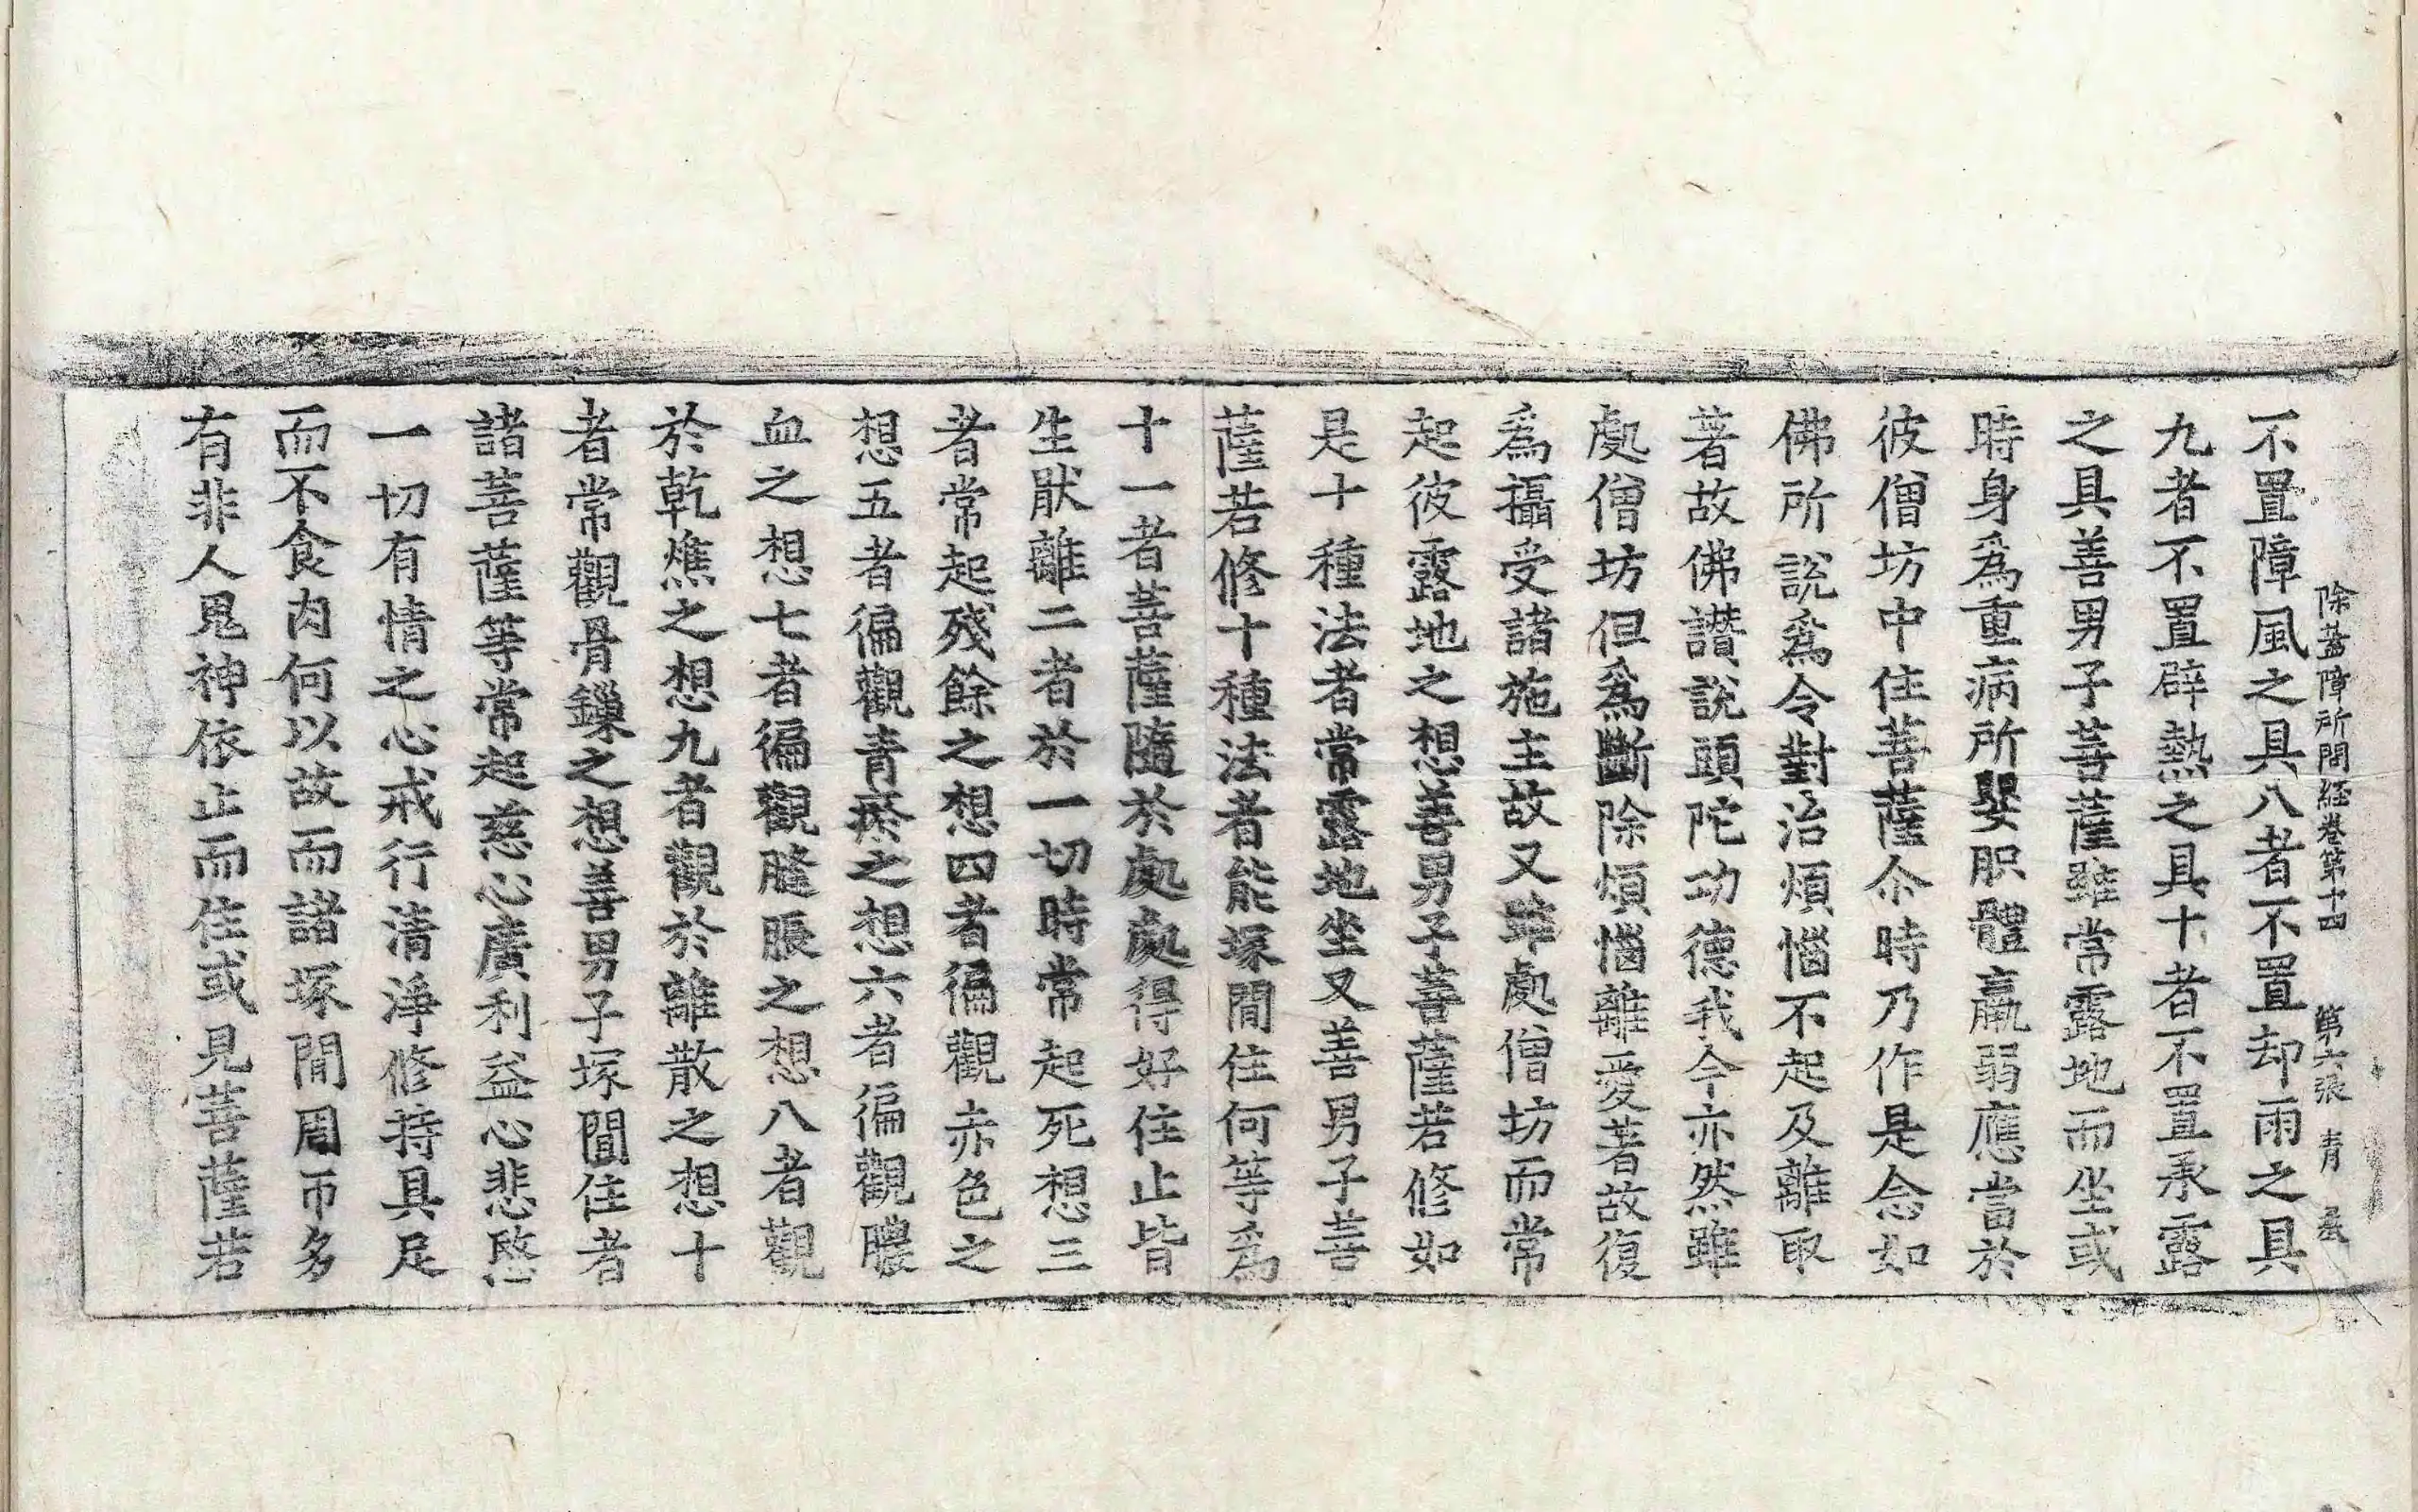 除蓋障所問経卷第十四 第六張 青
不置障風之具八者不置却雨之具
九者不置辟熱之具十者不置承露
之具善男子菩薩雖常露地而坐或
時身爲重病所嬰肢體羸弱應當於
彼僧坊中住菩薩尒時乃作是念如
佛所說爲令對治煩惱不起及離取
著故佛讚說頭陀功德我今亦然雖
處僧坊但爲斷除煩惱離愛著故復
爲攝受諸施主故又雖處僧坊而常
起彼露地之想善男子菩薩若修如
是十種法者常露地坐又善男子菩
薩若修十種法者能塚間住何等爲
十一者菩薩隨於處處得好住止皆
生猒離二者於一切時常起死想三
者常起殘餘之想四者徧觀赤色之
想五者徧觀青瘀之想六者徧觀膿
血之想七者徧觀膖脹之想八者觀
於乾燋之想九者觀於離散之想十
者常觀骨鏁之想善男子塚間住者
諸菩薩等常起慈心廣利益心悲愍
一切有情之心戒行清淨修持具足
而不食肉何以故而諸塚間周帀多
有非人鬼神依止而住或見菩薩若